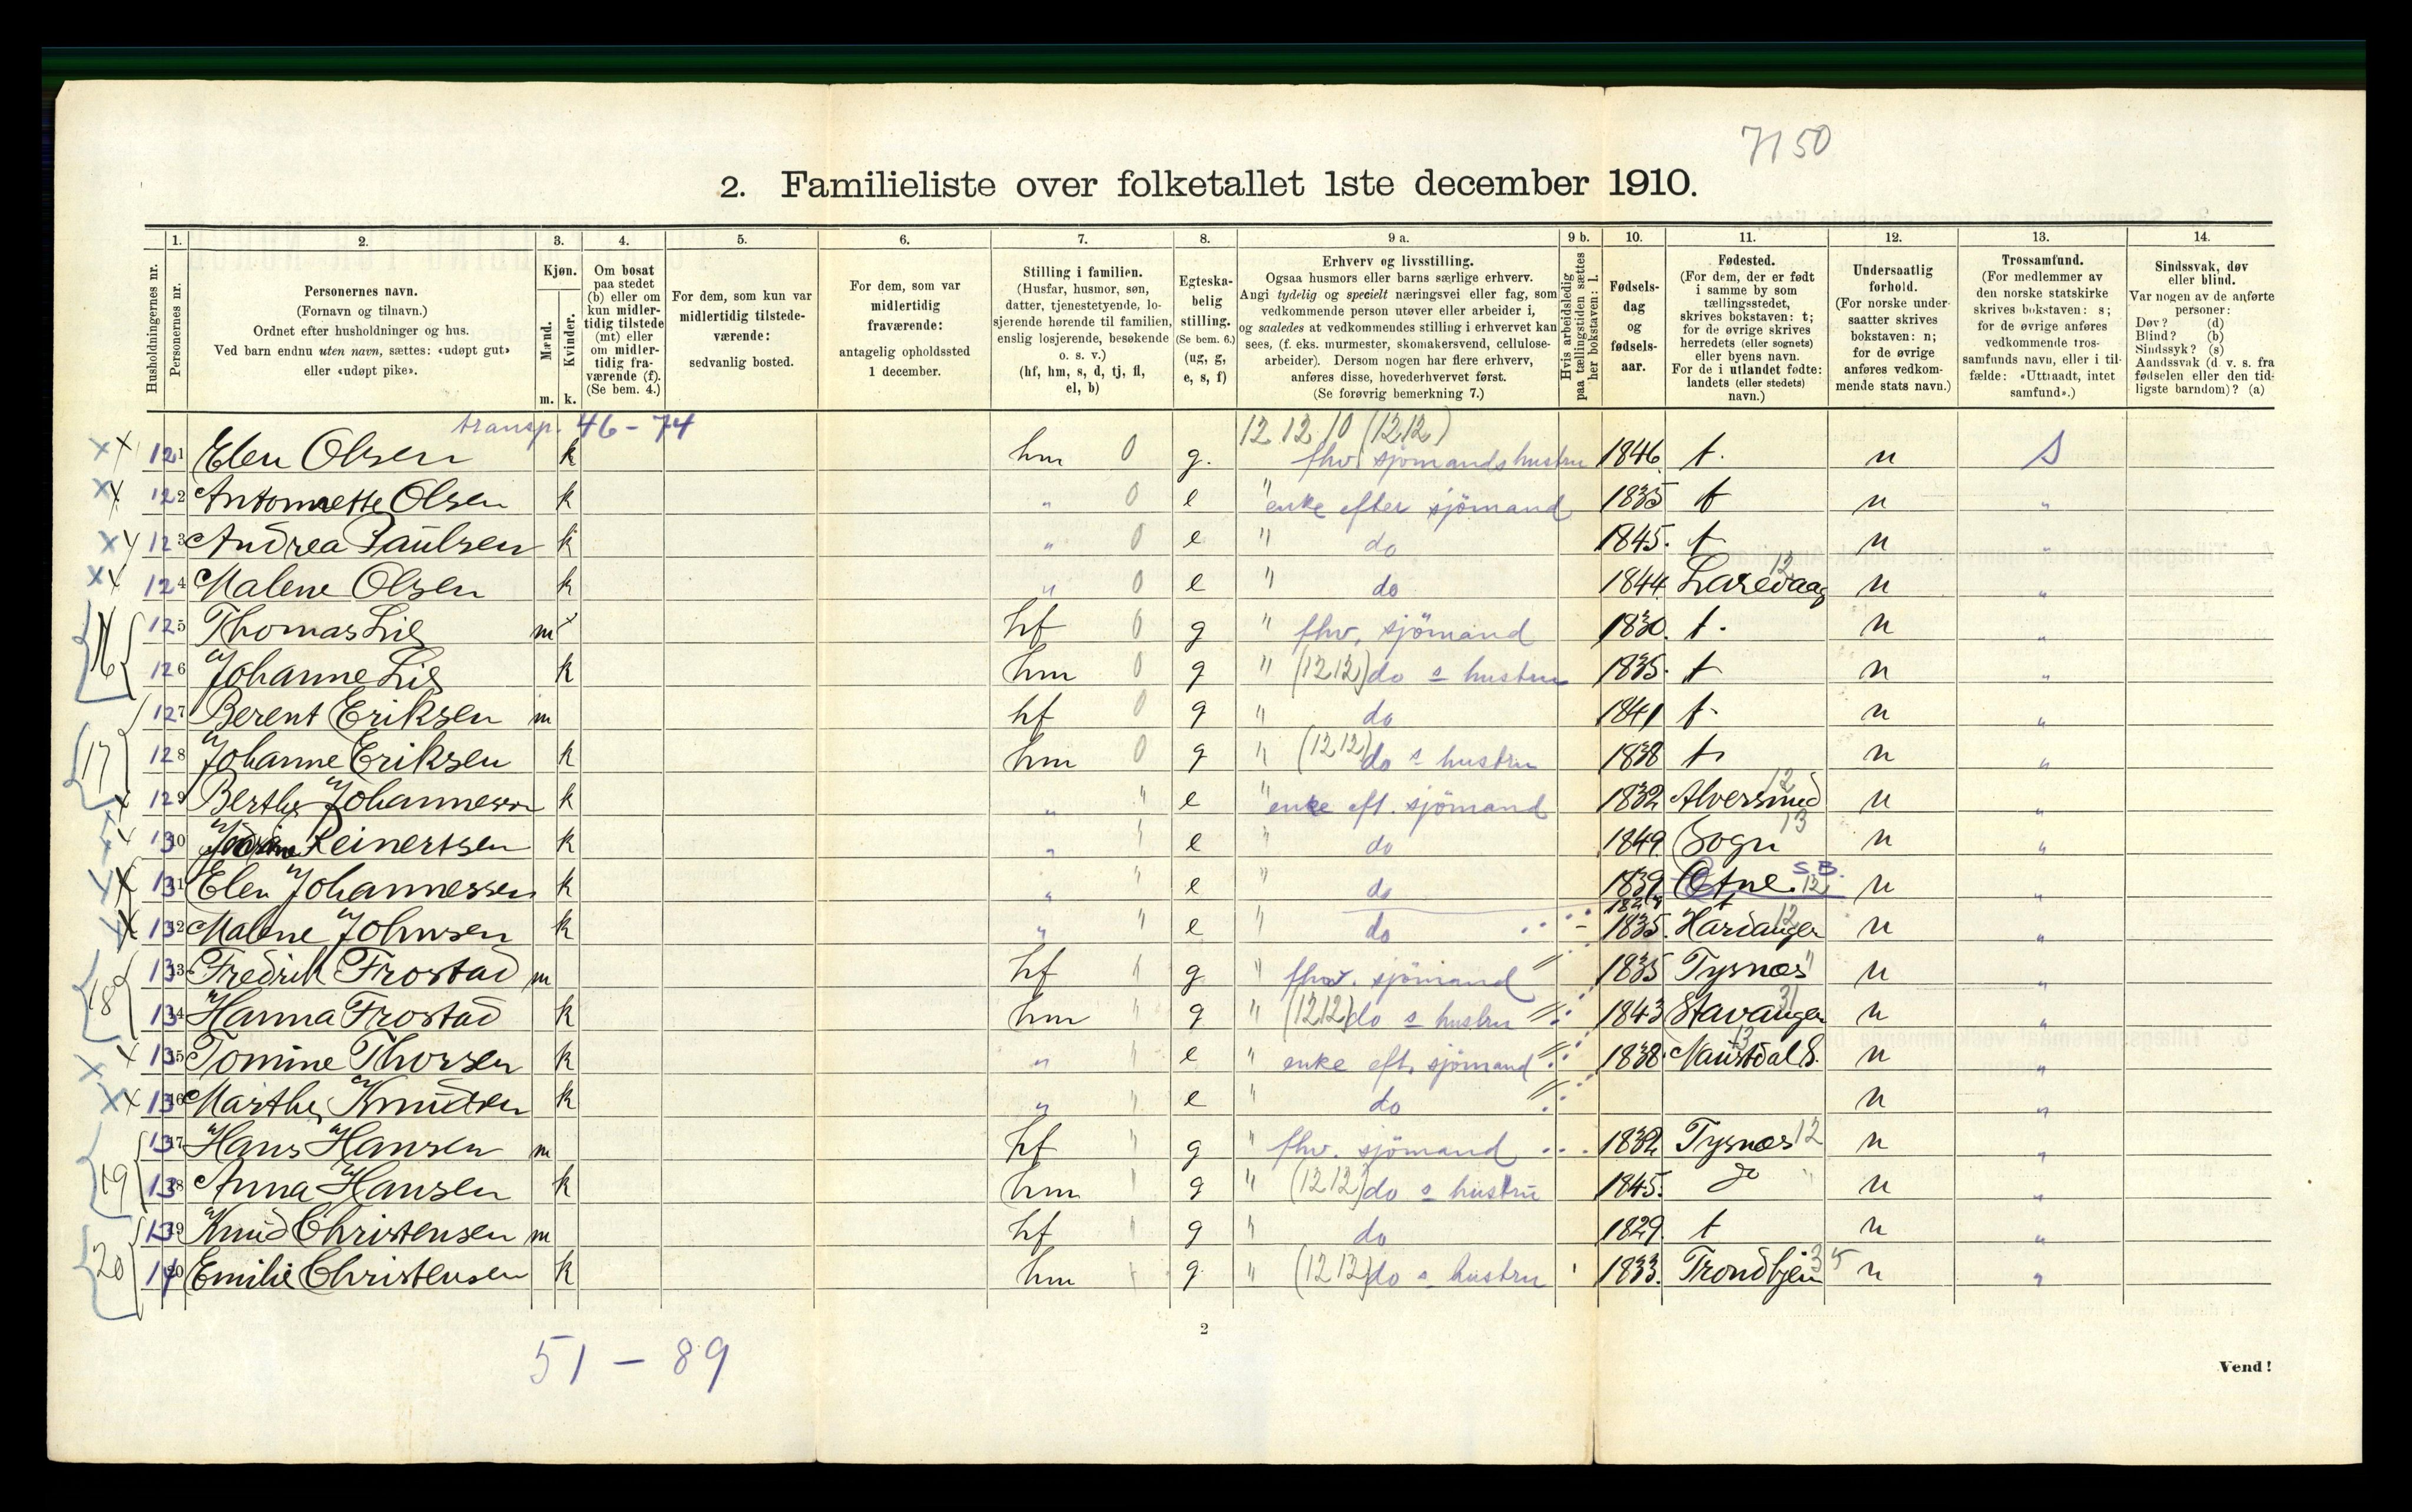 7150
2. Familieliste over folketallet 1ste december 1910.
1. 2. 3. 4. 5. 6. 7. 8. 9 a. 9 b. 10. 11. 12. 13. 14.
Husholdningernes nr.
Personernes nr.
Personernes navn.
(Fornavn og tilnavn.)
Ordnet efter husholdninger og hus.
Ved barn endnu uten navn, sættes: «udøpt gut»
eller «udøpt pike».
Kjøn.
Mænd.
Kvinder.
m. k.
Om bosat
paa stedet
(b) eller om
kun midler-
tidig tilstede
(mt) eller
om midler-
tidig fra-
værende (f).
(Se bem. 4.)
For dem, som kun var
midlertidig tilstede-
værende:
sedvanlig bosted.
For dem, som var
midlertidig
fraværende:
antagelig opholdssted
1 december.
Stilling i familien.
(Husfar, husmor, søn,
datter, tjenestetyende, lo-
sjerende hørende til familien,
enslig losjerende, besøkende
o. s. v.)
(hf, hm, s, d, tj, fl,
el, b)
Egteska-
belig
stilling.
(Se bem. 6.)
(ug, g,
e, s, f)
Erhverv og livsstilling.
Ogsaa husmors eller barns særlige erhverv.
Angi tydelig og specielt næringsvei eller fag, som
vedkommende person utøver eller arbeider i,
og saaledes at vedkommendes stilling i erhvervet kan
sees, (f. eks. murmester, skomakersvend, cellulose-
arbeider). Dersom nogen har flere erhverv,
anføres disse, hovederhvervet først.
(Se forøvrig bemerkning 7.)
Hvis arbeidsledig
paa tællingstiden sættes
her bokstaven: l.
Fødsels-
dag
og
fødsels-
aar.
Fødested.
(For dem, der er født
i samme by som
tællingsstedet,
skrives bokstaven: t;
for de øvrige skrives
herredets (eller sognets)
eller byens navn.
For de i utlandet fødte:
landets (eller stedets)
navn.)
Undersaatlig
forhold.
(For norske under-
saatter skrives
bokstaven: n;
for de øvrige
anføres vedkom-
mende stats navn.)
Trossamfund.
(For medlemmer av
den norske statskirke
skrives bokstaven: s;
for de øvrige anføres
vedkommende tros-
samfunds navn, eller i til-
fælde: «Uttraadt, intet
samfund».)
Sindssvak, døv
eller blind.
Var nogen av de anførte
personer:
Døv? (d)
Blind? (b)
Sindssyk? (s)
Aandssvak (d. v. s. fra
fødselen eller den tid-
ligste barndom)? (a)
transp. 46-74 12 12 10 (1212)
121 Elen Olsen k hm 0 g. fhv. sjömands hustru 1846 t. n S
122 Antonnette Olsen k " 0 e " enke efter sjömand 1835 t n "
123 Andrea Paulsen k " 0 e " do 1845. t n "
124 Malene Olsen k " 0 e " do 1844 Laxevaag 12 n "
16 125 Thomas Lie m hf 0 g " fhv. sjömand 1830. t. n "
126 Johanne Lie k hm 0 g " (1212) do s hustru 1835. t n "
17 127 Berent Eriksen m hf 0 g " do 1841 t. n "
128 Johanne Eriksen k hm 0 g " (1212) do s hustru 1838 t. n "
129 Berthe Johannesen k " " e " enke eft. sjömand 1832 Alversund 12 n "
130 Reinertsen k " " e " do 1849. Sogn 13 n "
131 Elen Johannessen k " " e " do 1839 Etne. S.B. 12 n "
132 Malene Johnsen k " " e " do 1835. Hardanger 12 n "
18 133 Fredrik Frostad m hf " g " fhv. sjömand 1835 Tysnæs " n "
134 Hanna Frostad k hm " g " (1212) do s hustru 1843 Stavanger 31 n "
135 Tomine Thorsen k " " e " enke eft. sjömand 1838. Naustdal S. 13 n "
136 Marthe Knudsen k " " e " do n "
19 137 Hans Hansen m hf " g " fhv. sjömand 1832 Tysnæs 12 n "
138 Anna Hansen k hm " g " (1212) do s hustru 1845. do " n "
20 139 Knud Christensen m hf " g " do 1829. t n "
140 Emilie Christensen k hm " g " (1212) do s hustru 1833. Trondhjem 35 n "
2
51 - 89
Vend!